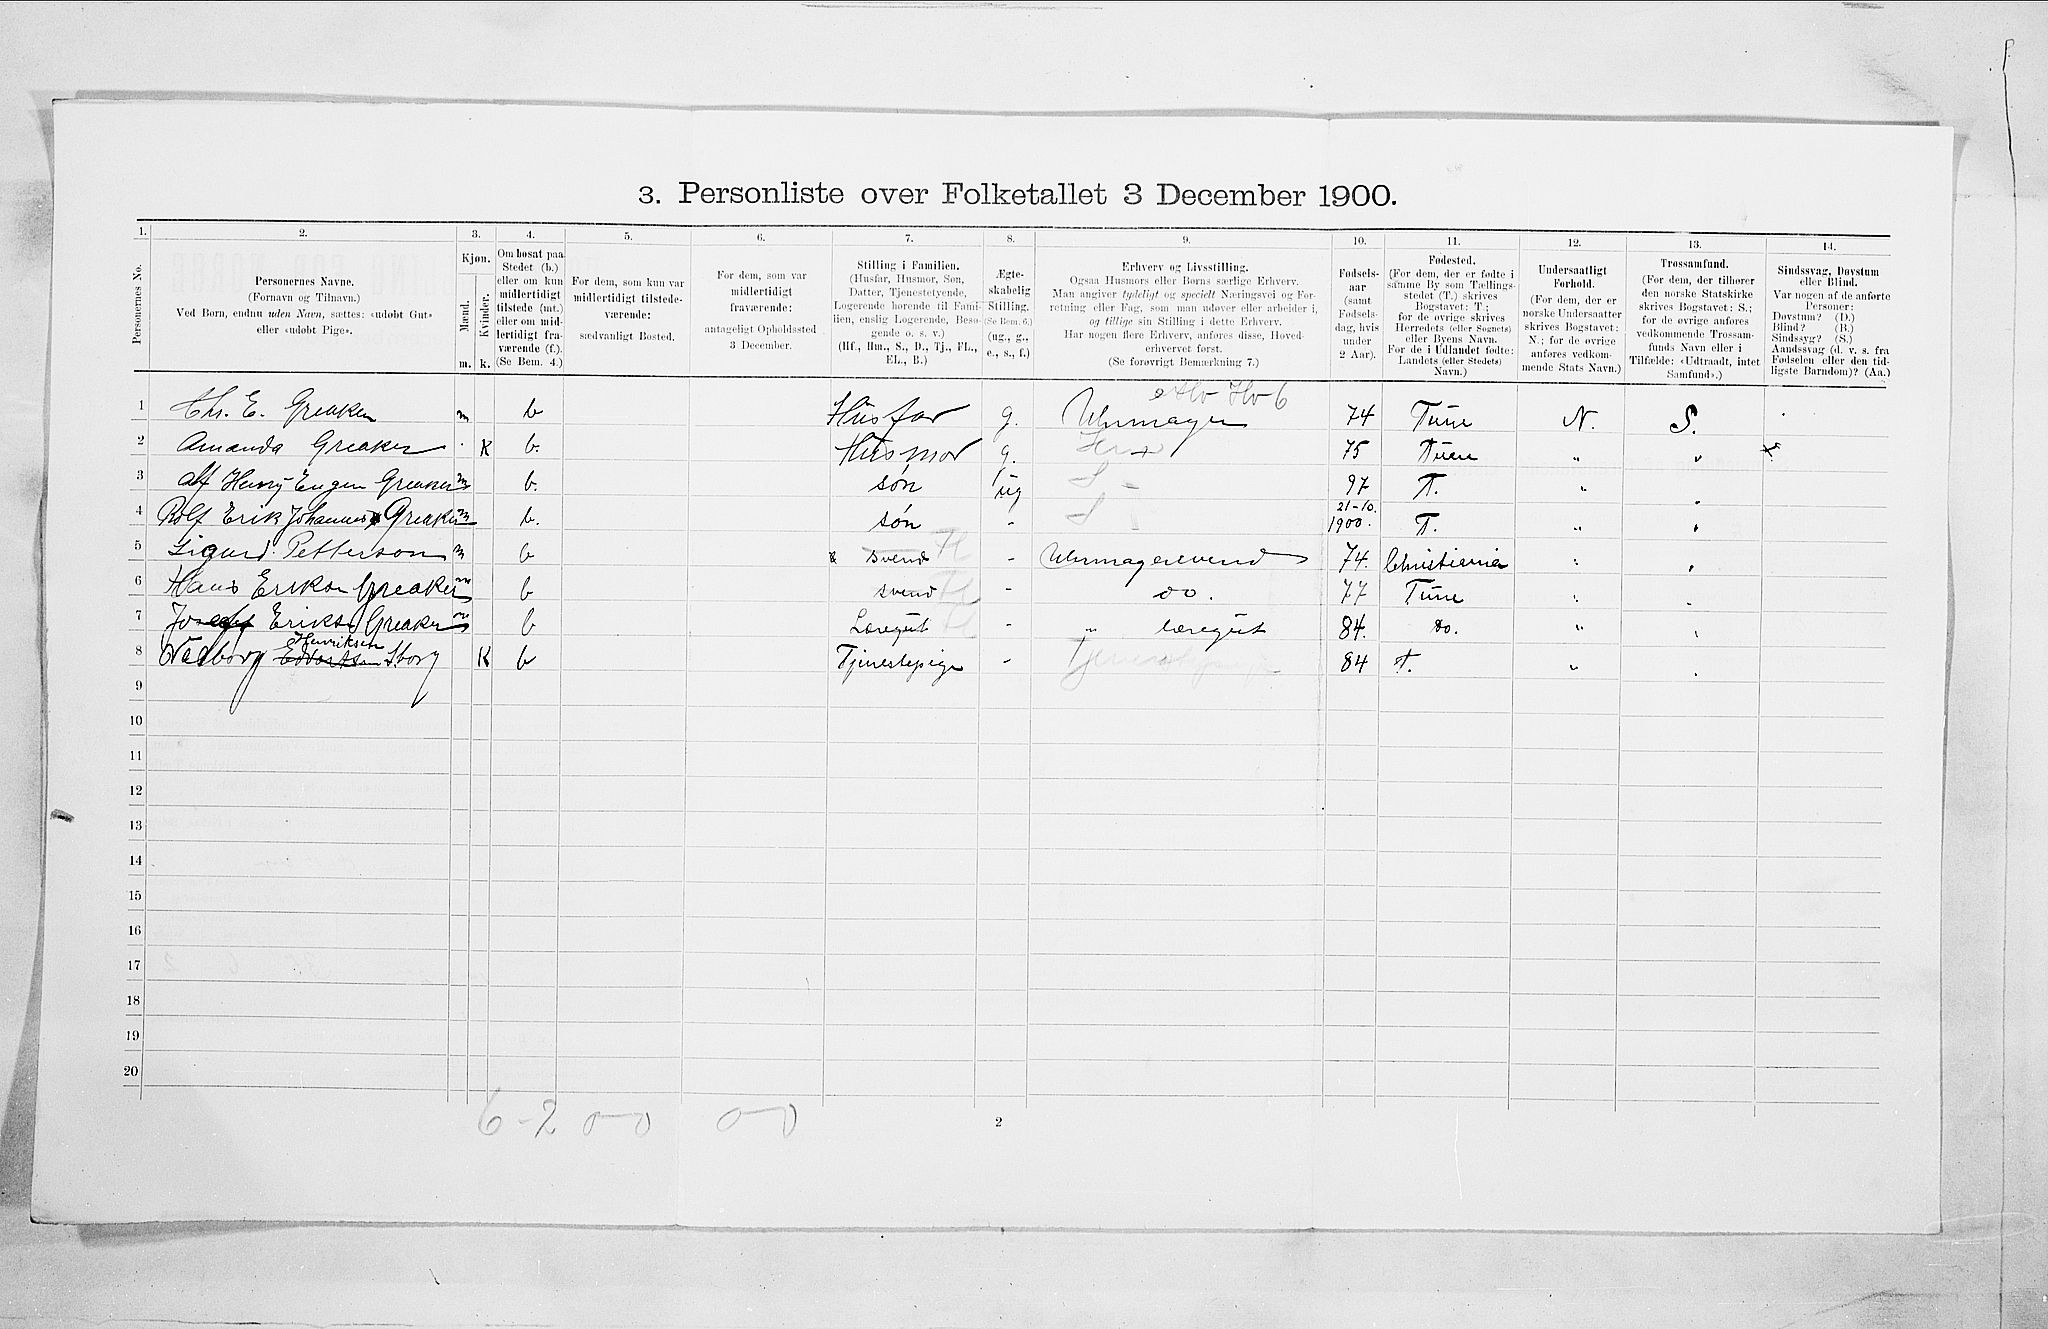 3. Personliste over Folketallet 3 December 1900.
1. 2. 3. 4. 5. 6. 7. 8. 9. 10. 11. 12. 13. 14.
Personernes No.
Personernes Navne.
(Fornavn og Tilnavn.)
Ved Børn, endnu uden Navn, sættes: «udøbt Gut»
eller «udøbt Pige».
Kjøn.
Mænd.
Kvinder.
m. k.
Om bosat paa
Stedet (b.)
eller om kun
midlertidigt
tilstede (mt.)
eller om mid-
lertidigt fra-
værende (f.).
(Se Bem. 4.)
For dem, som kun var
midlertidigt tilstede-
værende:
sædvanligt Bosted.
For dem, som var
midlertidigt
fraværende:
antageligt Opholdssted
3 December.
Stilling i Familien.
(Husfar, Husmor, Søn,
Datter, Tjenestetyende,
Logerende hørende til Fami-
lien, enslig Logerende, Besø-
gende o. s. v.)
(Hf., Hm., S., D., Tj., FL.,
EL., B.)
Ægte-
skabelig
Stilling.
(Se Bem. 6.)
(ug., g.,
e., s., f.)
Erhverv og Livsstilling.
Ogsaa Husmors eller Børns særlige Erhverv.
Man angiver tydeligt og specielt Næringsvei og For-
retning eller Fag, som man udøver eller arbeider i,
og tillige sin Stilling i dette Erhverv.
Har nogen flere Erhverv, anføres disse, Hoved-
erhvervet først.
(Se forøvrigt Bemærkning 7.)
Fødsels-
aar
(samt
Fødsels-
dag, hvis
under
2 Aar).
Fødested.
(For dem, der er fødte i
samme By som Tællings-
stedet (T.) skrives
Bogstavet: T.;
for de øvrige skrives
Herredets (eller Sognets)
eller Byens Navn.
For de i Udlandet fødte:
Landets (eller Stedets)
Navn.)
Undersaatligt
Forhold.
(For dem, der er
norske Undersaatter
skrives Bogstavet:
N.; for de øvrige
anføres vedkom-
mende Stats Navn.)
Trossamfund.
(For dem, der tilhører
den norske Statskirke
skrives Bogstavet: S.;
for de øvrige anføres
vedkommende Trossam-
funds Navn eller i
Tilfælde: «Udtraadt, intet
Samfund».)
Sindssvag, Døvstum
eller Blind.
Var nogen af de anførte
Personer:
Døvstum? (D.)
Blind? (B.)
Sindssyg? (S.)
Aandssvag (d. v. s. fra
Fødselen eller den tid-
ligste Barndom)? (Aa.)
1 Chr. E. Greaker m b Husfar g. Uhrmager 74 Tune N. S.
2 Amanda Greaker K b. Husmor g. 75 Tune " "
3 Alf Henry Eugen Greaker m b. søn ug 97 T. "
4 Rolf Erik Johannes Greaker m b. søn - 21-10. 1900. T. "
5 Sigurd Petterson m b svend - Uhrmagersvend 74. Christiania
6 Hans Erikson Greaker m b svend - do. 77 Tune
7 Josef Eriksen Greaker m b Læregut - " læregut 84. do. "
8 Valborg Edvartsen Henriksen Sborg K b Tjenestepige - Tjenestepige 84 T. "
9
10
11
12
13
14
15
16
17
18
19
20
6-2 0-0 0-0
2